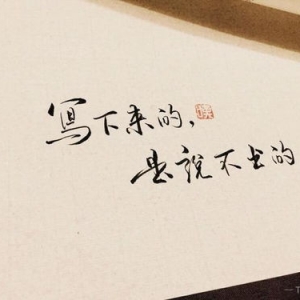 寫下来的，
是說不出的